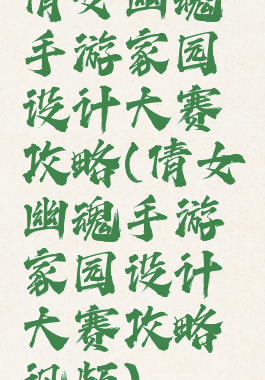 倩女幽魂
手游家园
设计大赛
攻略(倩女
幽魂手游
家园设计
大赛攻略
视频)